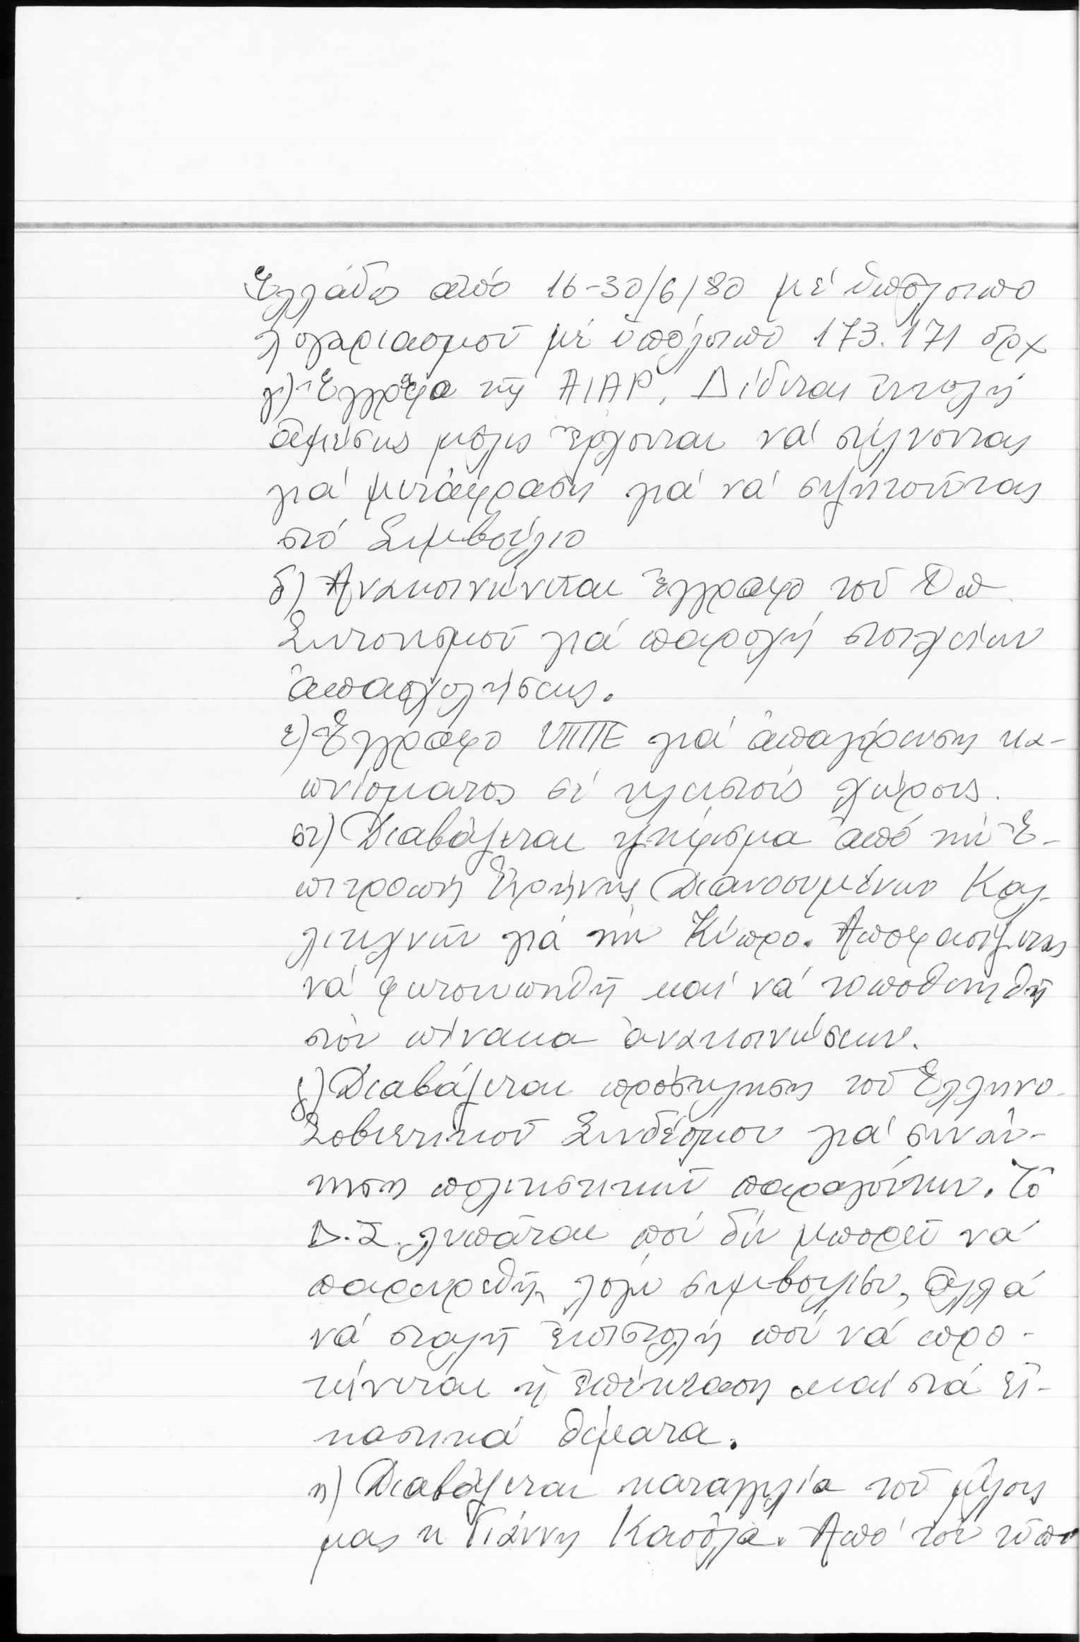 Ἑλλάδος ἀπό 16-30/6/80 μέ ὑπόλοιπο
λογαριασμοῦ μέ ὑπόλοιπο 173.171 δρχ
γ) Ἔγγραφα τῆς AIAP. Δίδεται ἐντολή
ἀμέσως μόλις ἔρχονται νά στέλνονται
γιά μετάφραση γιά νά συζητοῦνται
στό Συμβούλιο
δ) Ἀνακοινώνεται ἔγγραφο τοῦ Ὑπ.
Συντονισμοῦ γιά παροχή στοιχείων
ἀπασχολήσεως.
ε) Ἔγγραφο ΥΠΠΕ γιά ἀπαγόρευση κα-
πνίσματος σέ κλειστούς χώρους.
στ) Διαβάζεται ψήφισμα ἀπό τήν Ἐ-
πιτροπή Εἰρήνης Διανοουμένων Καλ-
λιτεχνῶν γιά τήν Κύπρο. Ἀποφασίζεται
νά φωτοτυπηθῆ καί νά τοποθετηθῆ
στόν πίνακα ἀνακοινώσεων.
ζ) Διαβάζεται πρόσκληση τοῦ Ἑλληνο-
Σοβιετικοῦ Συνδέσμου γιά συνάν-
τηση πολιτιστικῶν παραγόντων. Τό
Δ.Σ. λυπᾶται πού δέν μπορεῖ νά
παρευρεθῆ, λόγω συμβουλίου, ἀλλά
νά σταλῆ ἐπιστολή πού νά προ-
τείνεται ἡ ἐπέκταση καί στά εἰ-
καστικά θέματα.
η) Διαβάζεται καταγγελία τοῦ μέλους
μας κ Γιάννη Κασόλα. Ἀπό τόν τύπο